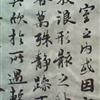 室之内或因
放浪形骸之
萬殊静躁
其欣於所遇暫